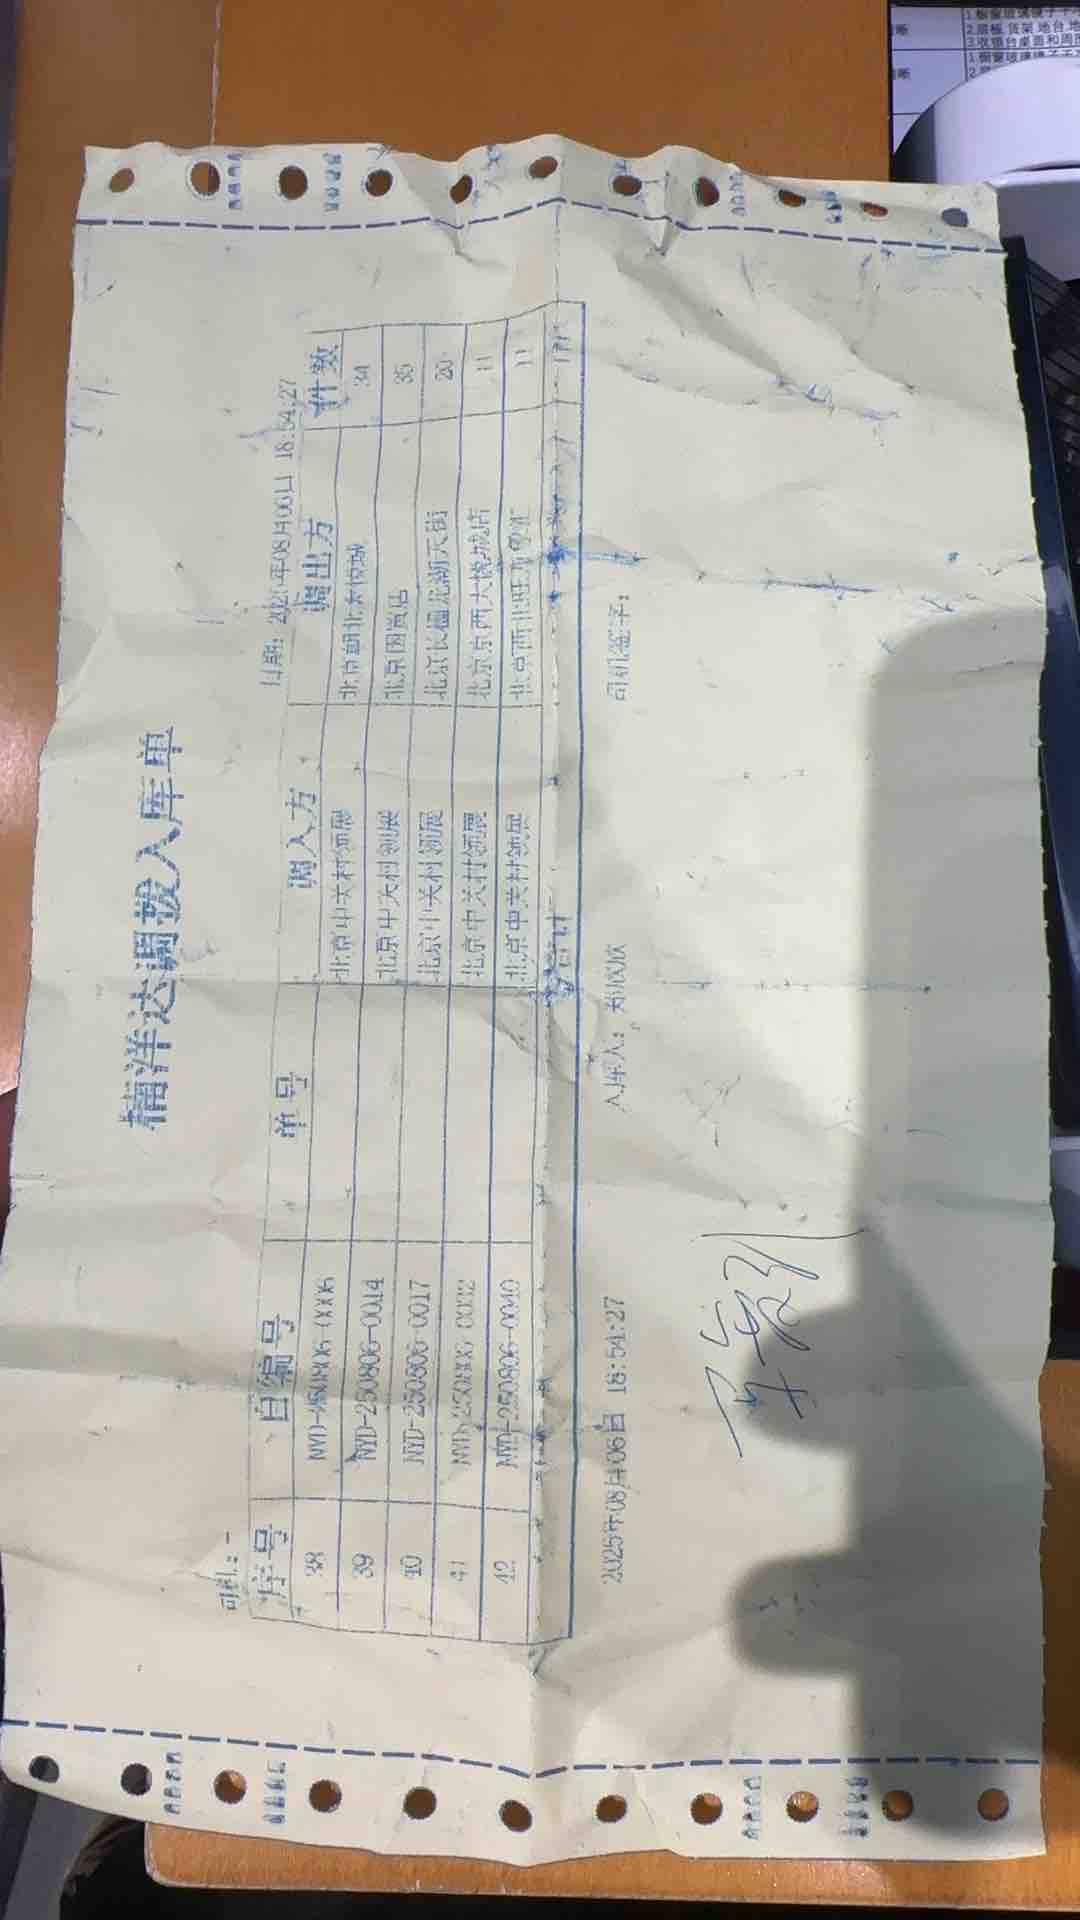 楅洋达调拨入库单
司机:-
日期: 2025年08月06日 18:54:27
序号 自编号 单号 调入方 调出方 件数
38 NYD-250806-0006 北京中关村领展 北京朝北大悦城 34
39 NYD-250806-0014 北京中关村领展 北京国贸店 35
40 NYD-250806-0017 北京中关村领展 北京长楹龙湖天街 20
41 NYD-250806-0032 北京中关村领展 北京京西大悦城店 11
42 NYD-250806-0040 北京中关村领展 11
合计
2025年08月06日 18:54:27 入库人: 司机签字: